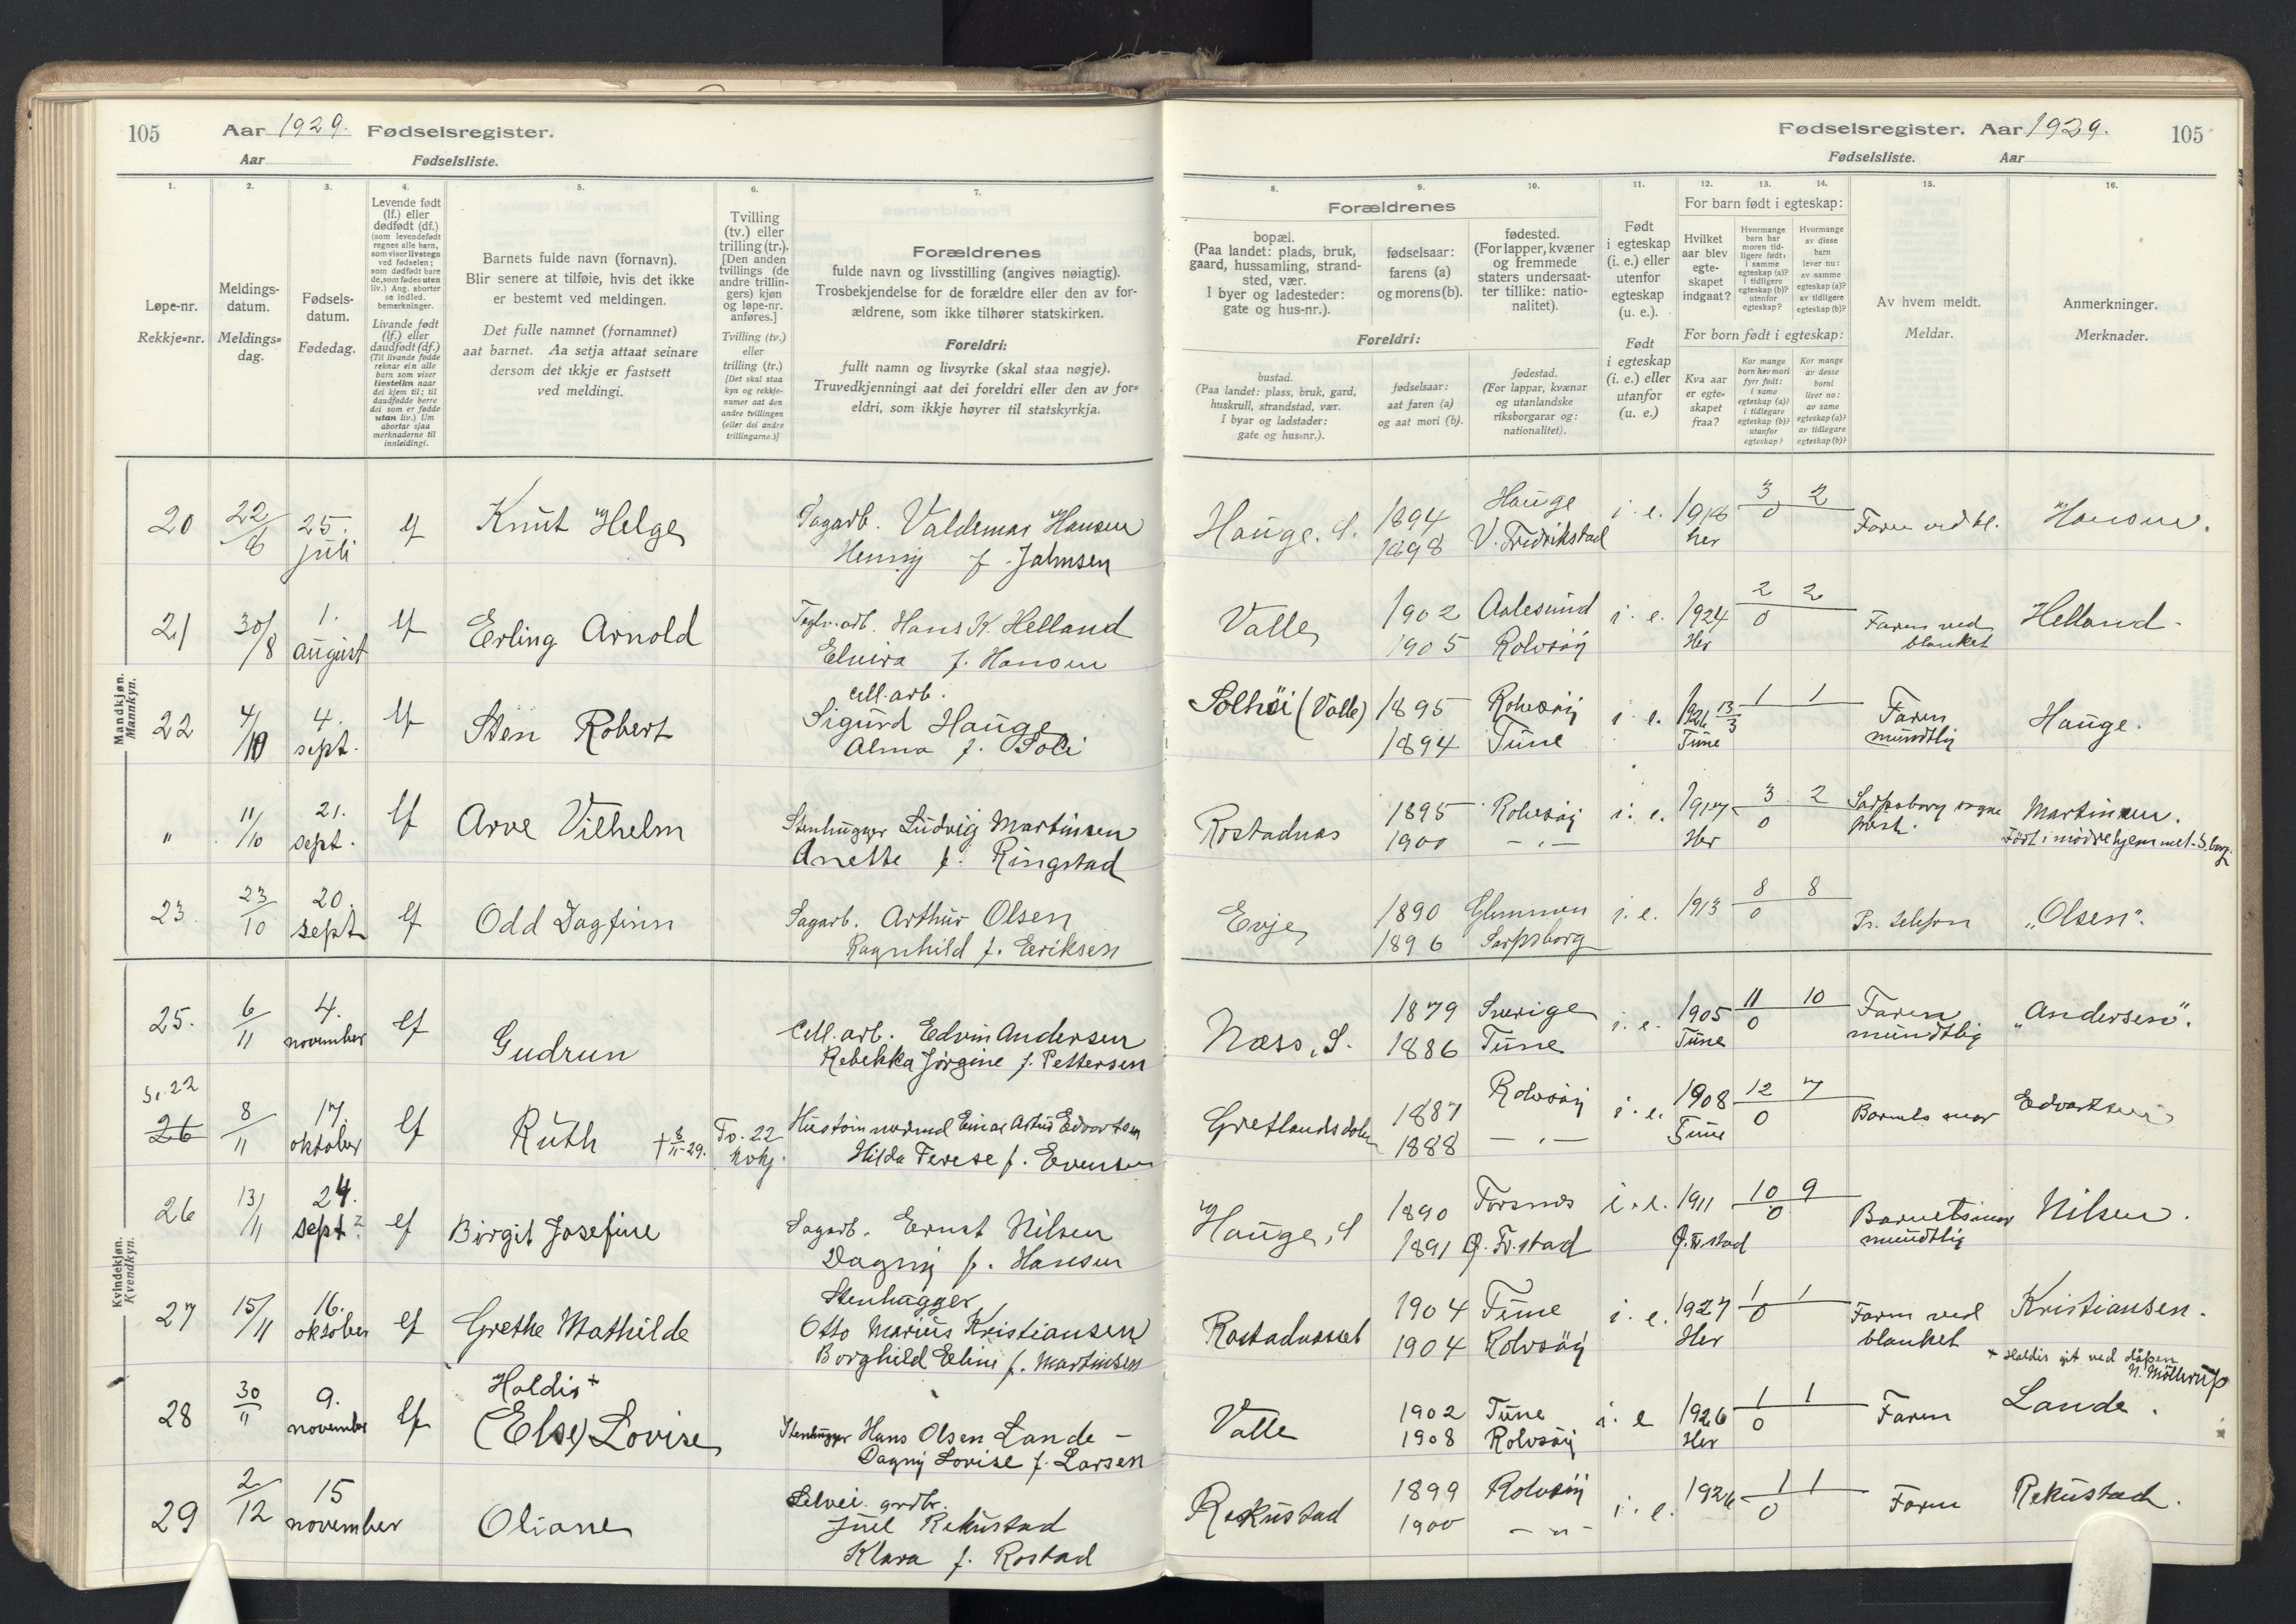 105 Aar 1929. Fødselsregister.
Aar Fødselsliste.
Fødselsregister. Aar 1929. 105
Fødselsliste. Aar
1. 2. 3. 4. 5. 6. 7.
Løpe-nr.
Rekkje=nr.
Meldings-
datum.
Meldings=
dag.
Fødsels-
datum.
Fødedag.
Levende født
(lf.) eller
dødfødt (df.)
(som levendefødt
regnes alle barn,
som viser livstegn
ved fødselen;
som dødfødt bare
de, som fødes uten
liv.) Ang. aborter
se indled.
bemerkninger.
Livande født
(lf.) eller
daudfødt (df.)
(Til livande fødde
reknar ein alle
barn som viser
livsteikn naar
dei kjem til; til
daudfødde berre
dei som er fødde
utan liv.) Um
abortar sjaa
merknaderne til
innleidingi.
Barnets fulde navn (fornavn).
Blir senere at tilføie, hvis det ikke
er bestemt ved meldingen.
Det fulle namnet (fornamnet)
aat barnet. Aa setja attaat seinare
dersom det ikkje er fastsett
ved meldingi.
Tvilling
(tv.) eller
trilling (tr.).
[Den anden
tvillings (de
andre trillin-
gers) kjøn
og løpe-nr.
anføres.]
Tvilling (tv.)
eller
trilling (tr.)
[Det skal staa
kyn og rekkje-
numer aat den
andre tvillingen
(eller dei andre
trillingarne.)]
Forældrenes
fulde navn og livsstilling (angives nøiagtig).
Trosbekjendelse for de forældre eller den av for-
ældrene, som ikke tilhører statskirken.
Foreldri:
fullt namn og livsyrke (skal staa nøgje).
Truvedkjenningi aat dei foreldri eller den av for=
eldri, som ikkje høyrer til statskyrkja.
8. 9. 10. 11. 12. 13. 14. 15. 16.
Forældrenes
bopæl.
(Paa landet: plads, bruk,
gaard, hussamling, strand-
sted, vær.
I byer og ladesteder:
gate og hus-nr.).
fødselsaar:
farens (a)
og morens (b).
fødested.
(For lapper, kvæner
og fremmede
staters undersaat-
ter tillike: natio-
nalitet).
Foreldri:
bustad.
(Paa landet: plass, bruk, gard,
huskrull, strandstad, vær.
I byar og ladstader:
gate og hus=nr.).
fødselsaar:
aat faren (a)
og aat mori (b).
fødestad.
(For lappar, kvænar
og utanlandske
riksborgarar og:
nationalitet).
Født
i egteskap
(i. e.) eller
utenfor
egteskap
(u. e.).
Født
i egteskap
(i. e.) eller
utanfor
(u. e.)
For barn født i egteskap:
Hvilket
aar blev
egte-
skapet
indgaat?
Hvormange
barn har
moren tid-
ligere født:
i samme
egteskap (a)?
i tidligere
egteskap (b)?
utenfor
egteskap?
Hvormange
av disse
barn
lever nu:
av samme
egteskap (a)?
av tidligere
egteskap (b)?
For born født i egteskap:
Kva aar
er egte-
skapet
fraa?
Kor mange
born hev mori
fyrr født:
i same
egteskap (a)?
i tidlegare
egteskap (b)?
utanfor
egteskap?
Kor mange
av desse
borni
liver no:
av same
egteskap (a)?
av tidlegare
egteskap (b)?
Av hvem meldt.
Meldar.
Anmerkninger.
Merknader.
Mandkjøn.
Mannkyn.
20 22/8 25. juli lf Knut Helge Sagarb. Valdemar Hansen
Henny f. Jahnsen
Hauge. S. 1894 Hauge i. e. 1918 3 2 Faren ved bl. Hansen.
1898 V. Fredrikstad her 0
21 30/8 1. august lf Erling Arnold Teglv.arb. Hans K. Helland
Elvira f. Hansen
Valle 1902 Aalesund i. e. 1924 2 2 Faren ved Helland.
1905 Rolvsöy Her 0 blanket
22 4/10 4. sept. lf Sten Robert cell. arb.
Sigurd Hauge
Alma f. Soli
Solhöi (Valle) 1895 Rolvsöy i. e. 1926 13/3 1 1 Faren Hauge.
1894 Tune Tune mundtlig
" 11/10 21. sept. lf Arve Vilhelm Stenhugger Ludvig Martinsen
Anette f. Ringstad
Rostadnæs 1895 Rolvsöy i. e. 1917 3 2 Sarpsborg sogne Martinsen.
1900 — " — Her 0 prest. Født i mödrehjemmet - S.borg.
23. 23/10 20. sept. lf Odd Dagfinn Sagarb. Arthur Olsen
Ragnhild f. Eriksen
Evje 1890 Glemmen i. e. 1913 8 8 Pr. telefon "Olsen".
1896 Sarpsborg 0
Kvindekjøn.
Kvendkyn.
25. 6/11 4. november lf Gudrun Cell. arb. Edvin Andersen
Rebekka Jörgine f. Pettersen
Næss, S. 1879 Sverige i. e. 1905 11 10 Faren "Andersen".
1886 Tune Tune 0 mundtlig
26 8/11 17. oktober lf Ruth † 8/11-29. Tv. 22 Hustömmermand Einar Artur Edvartsen
Hilda Terese f. Evensen
Gretlandsdalen 1887 Rolvsöy i. e. 1908 12 7 Barnets mor Edvartsen
1888 — " — Tune 0
26 13/11 24. sept. lf Birgit Josefine Sagarb. Ernst Nilsen
Dagny f. Hansen
Hauge, S 1890 Torsnes i. e. 1911 10 9 Barnets mor Nilsen.
1891 Ø. Fr.stad Ø. Fr.stad 0 mundtlig
27 15/11 16. oktober lf Grethe Mathilde Stenhugger
Otto Marius Kristiansen
Borghild Eline f. Martinsen
Rostadnesset 1904 Tune i. e. 1927 1 1 Faren ved Kristiansen.
1904 Rolvsöy Her 0 blanket
+ Haldis git ved dåpen
N. Möllerup
28 30/11 9. november lf Haldis +
(Else) Lovise Stenhugger Hans Olsen Lande -
Dagny Lovise f. Larsen
Valle 1902 Tune i. e 1926 1 1 Faren Lande.
1908 Rolvsöy Her 0
29 2/12 15 november Oliane Selvei. grdbr.
Juel Rekustad
Klara f. Rostad
Rekustad 1899 Rolvsöy i. e. 1926 1 1 Faren Rekustad.
1900 — " — 0